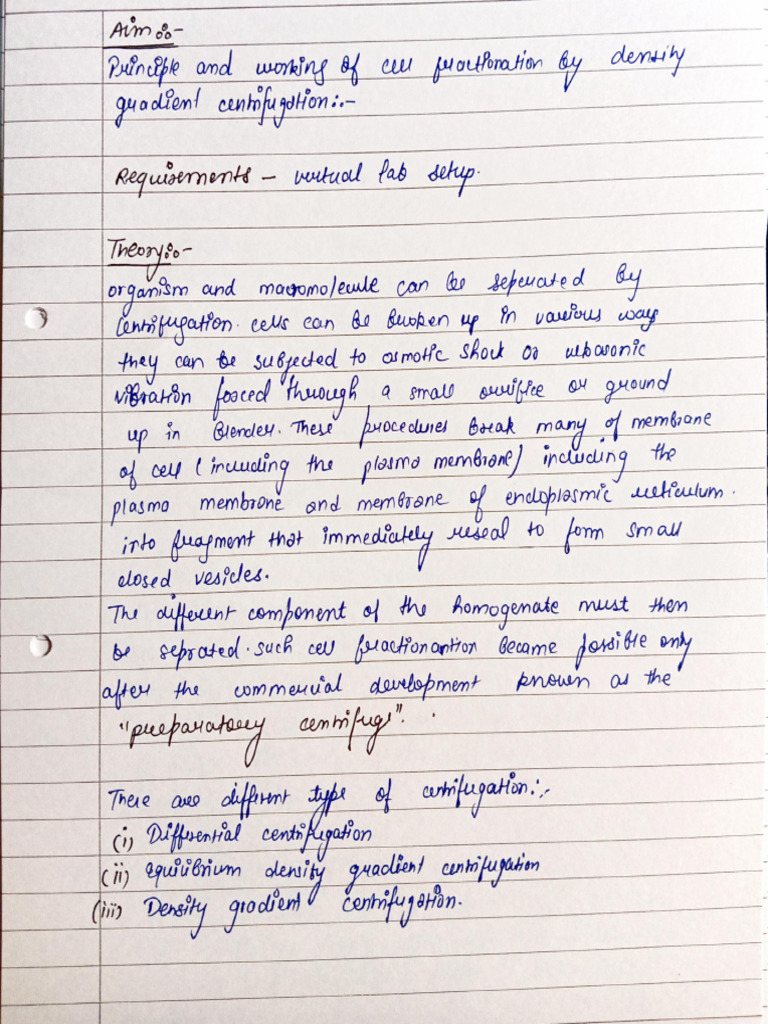 Aim :-
Principle and working of cell fractionation by density
gradient centrifugation :-
Requirements - virtual lab setup.
Theory :-
organism and macromolecule can be seperated by
Centrifugation. cells can be broken up in various ways
they can be subjected to osmotic shock or ultrasonic
vibration forced through a small orrifice or ground
up in Blender. These procedures break many of membrane
of cell (including the plasma membrane) including the
plasma membrane and membrane of endoplasmic reticulum.
into fragment that immediately reseal to form small
closed vesicles.
The different component of the homogenate must then
be seprated. such cell fractionantion became possible only
after the commercial development known as the
"preparatory centrifuge".
There are different type of centrifugation :-
(i) Differential centrifugation
(ii) Equilibrium density gradient centrifugation
(iii) Density gradient centrifugation.